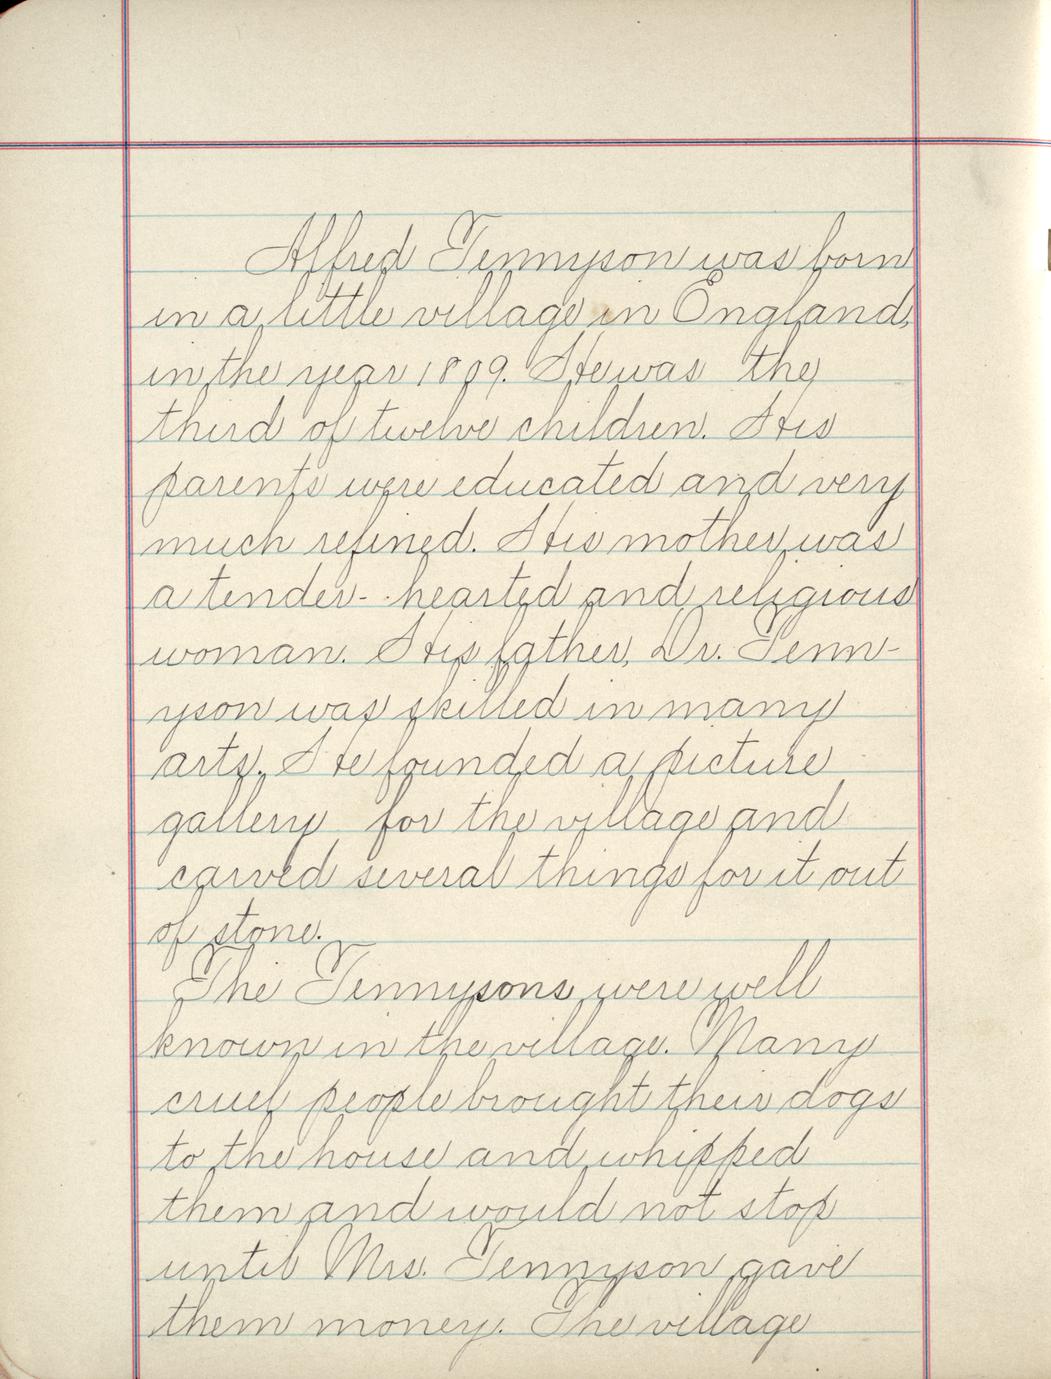 Alfred Tennyson was born
in a little village in England,
in the year 1809. He was the
third of twelve children. His
parents were educated and very
much refined. His mother was
a tender-hearted and religious
woman. His father, Dr. Tenn-
yson was skilled in many
arts. He founded a picture
gallery for the village and
carved several things for it out
of stone.
The Tennysons were well
known in the village. Many
cruel people brought their dogs
to the house and whipped
them and would not stop
until Mrs. Tennyson gave
them money. The village